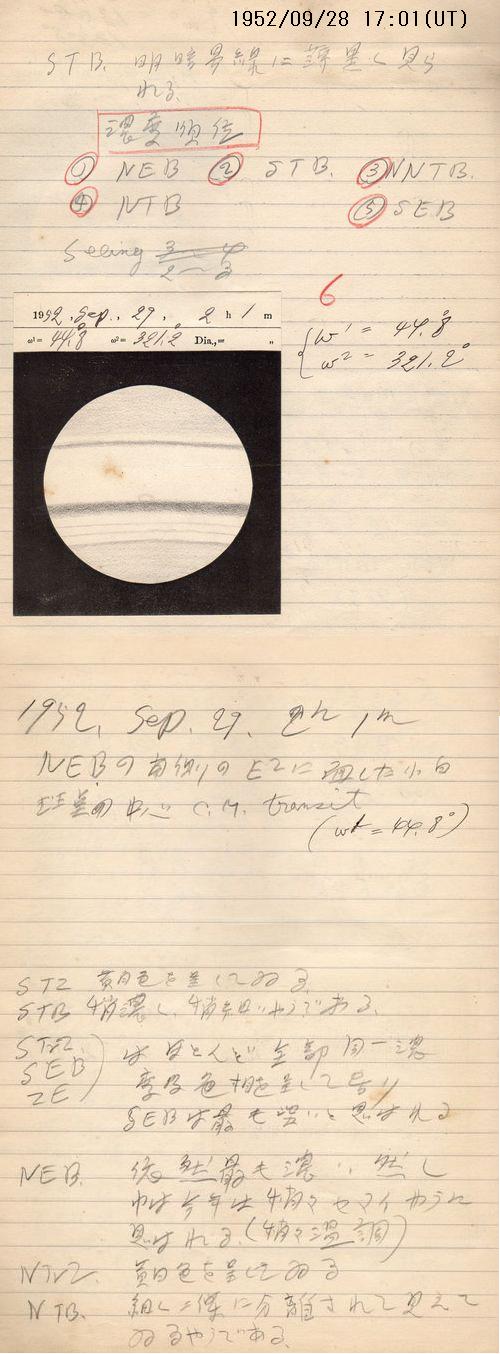 1952/09/28 17:01(UT)
STB. 明暗界線に 見ら
れる.
濃度順位
① NEB ② STB. ③ NNTB.
④ NTB ⑤ SEB
Seeing 3~4
2~3
6
1952, Sep., 29, 2 h 1 m
ω¹= 44.8° ω²= 321.2° Dia.,= "
ω¹ = 44.8°
ω² = 321.2°
1952, Sep. 29. 2h 1m
NEBの南側のEZに面した小白
斑の中心 C.M. transit
(ω¹ = 44.8°)
STZ 黄白色を呈してゐる
STB 稍濃く、稍細いやうである.
STrZ
SEB
ZE
はほとんど全部同一濃
度及色相を呈して居り
SEBは最も淡いと思はれる
NEB. 依然最も濃い 然し
巾は今年は稍々セマイやうに
思はれる.(稍々温調)
NTrZ. 黄白色を呈してゐる
NTB. 細い二線に分離されて見えて
ゐるやうである.